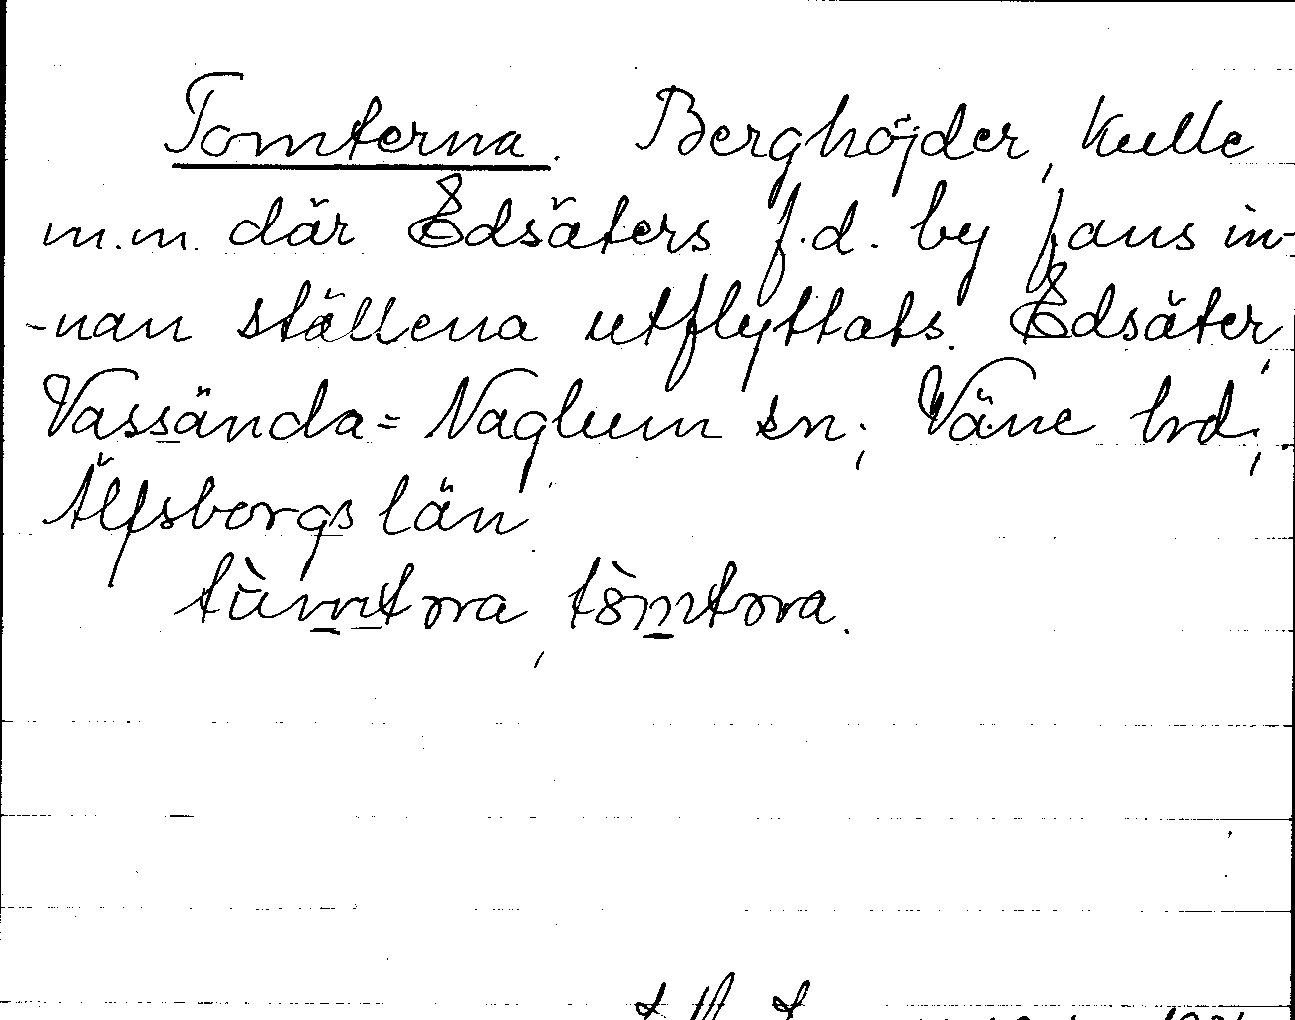 Tomterna. Berghöjder, kulle
m.m. där Edsäters f.d. by fans in-
-nan ställena utflyttats. Edsäter,
Vassända=Naglum sn; Väne hrd;
Älfsborgs län